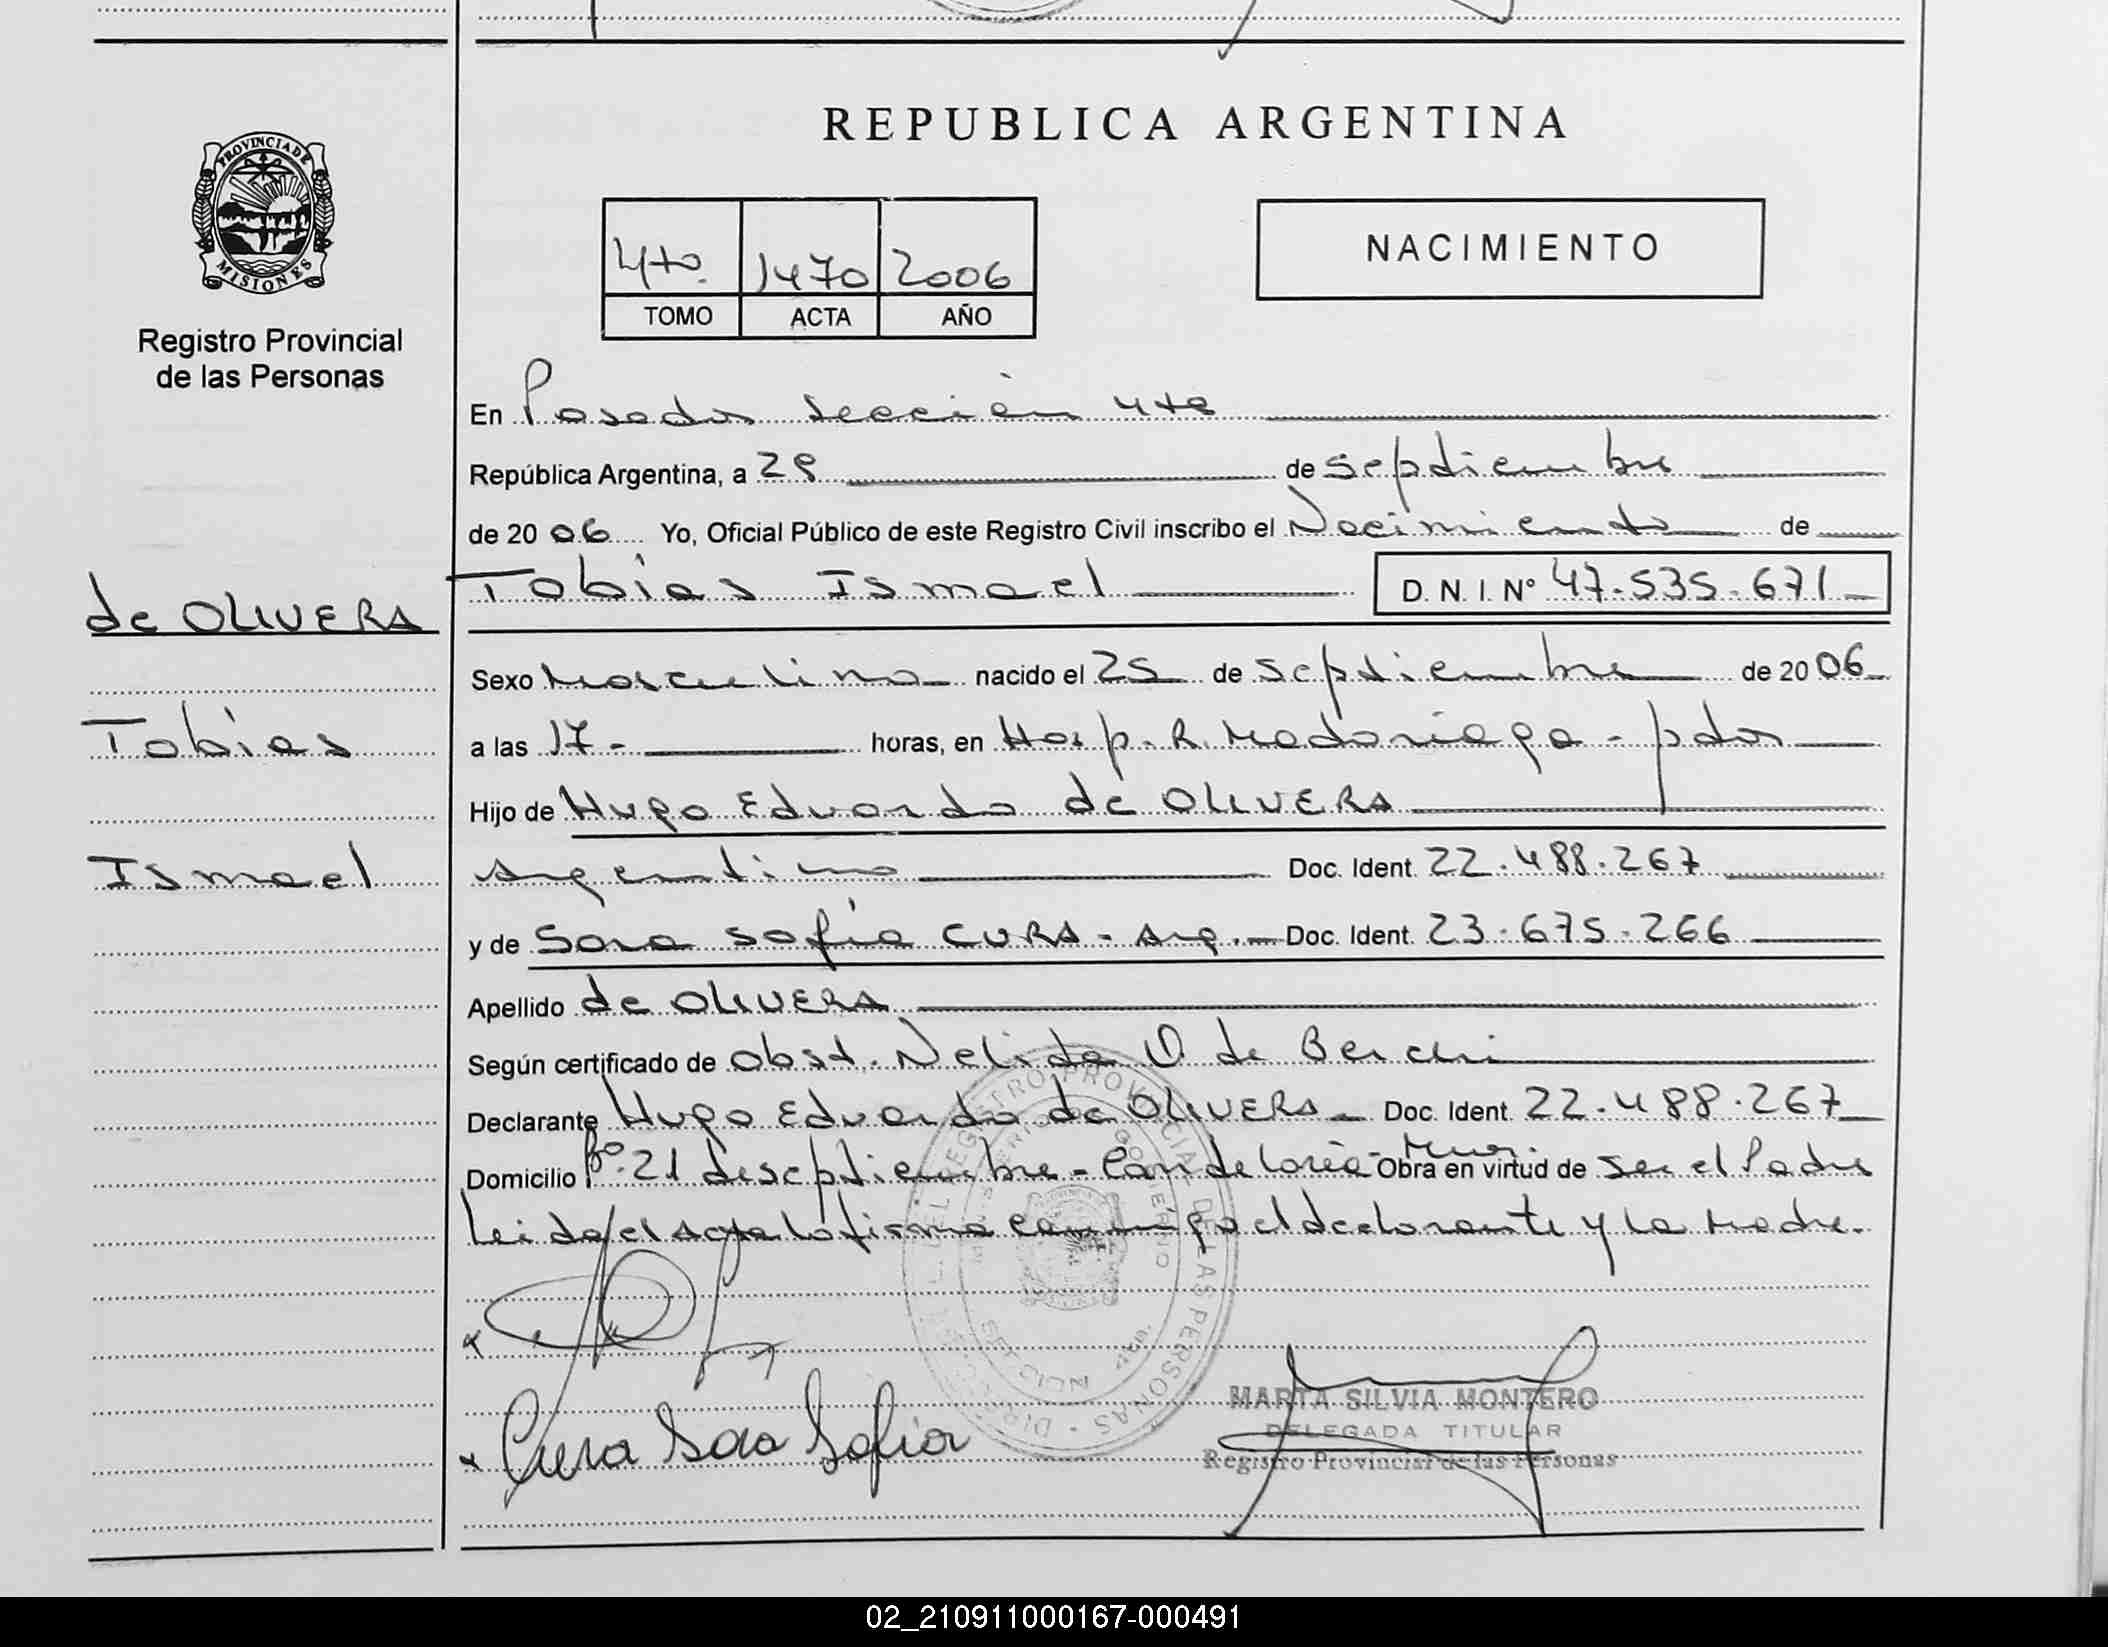 REPUBLICA ARGENTINA
PROVINCIA DE MISIONES
Registro Provincial
de las Personas
4to. 1470 2006
TOMO ACTA AÑO
NACIMIENTO
En Posadas sección 4ta
República Argentina, a 28 de septiembre
de 2006 Yo, Oficial Público de este Registro Civil inscribo el Nacimiento de
Tobías Ismael D. N. I. Nº 47.535.671
de OLIVERA
Tobías
Ismael
Sexo Masculino nacido el 25 de septiembre de 2006
a las 17- horas, en Hosp. R. Madariaga - pdas
Hijo de Hugo Eduardo de OLIVERA
argentino Doc. Ident. 22.488.267
y de Sara Sofía CURA - arg. - Doc. Ident. 23.675.266
Apellido de OLIVERA
Según certificado de obst. Nelida O. de
Declarante Hugo Eduardo de OLIVERA Doc. Ident. 22.488.267
Domicilio Bº. 21 de septiembre - Candelaria - Obra en virtud de ser el Padre
Leida el acta la firma conmigo el declarante y la madre.
REGISTRO PROVINCIAL DE LAS PERSONAS
Cura Sara Sofía
MARTA SILVIA MONTERO
DELEGADA TITULAR
Registro Provincial de las Personas
02_210911000167-000491